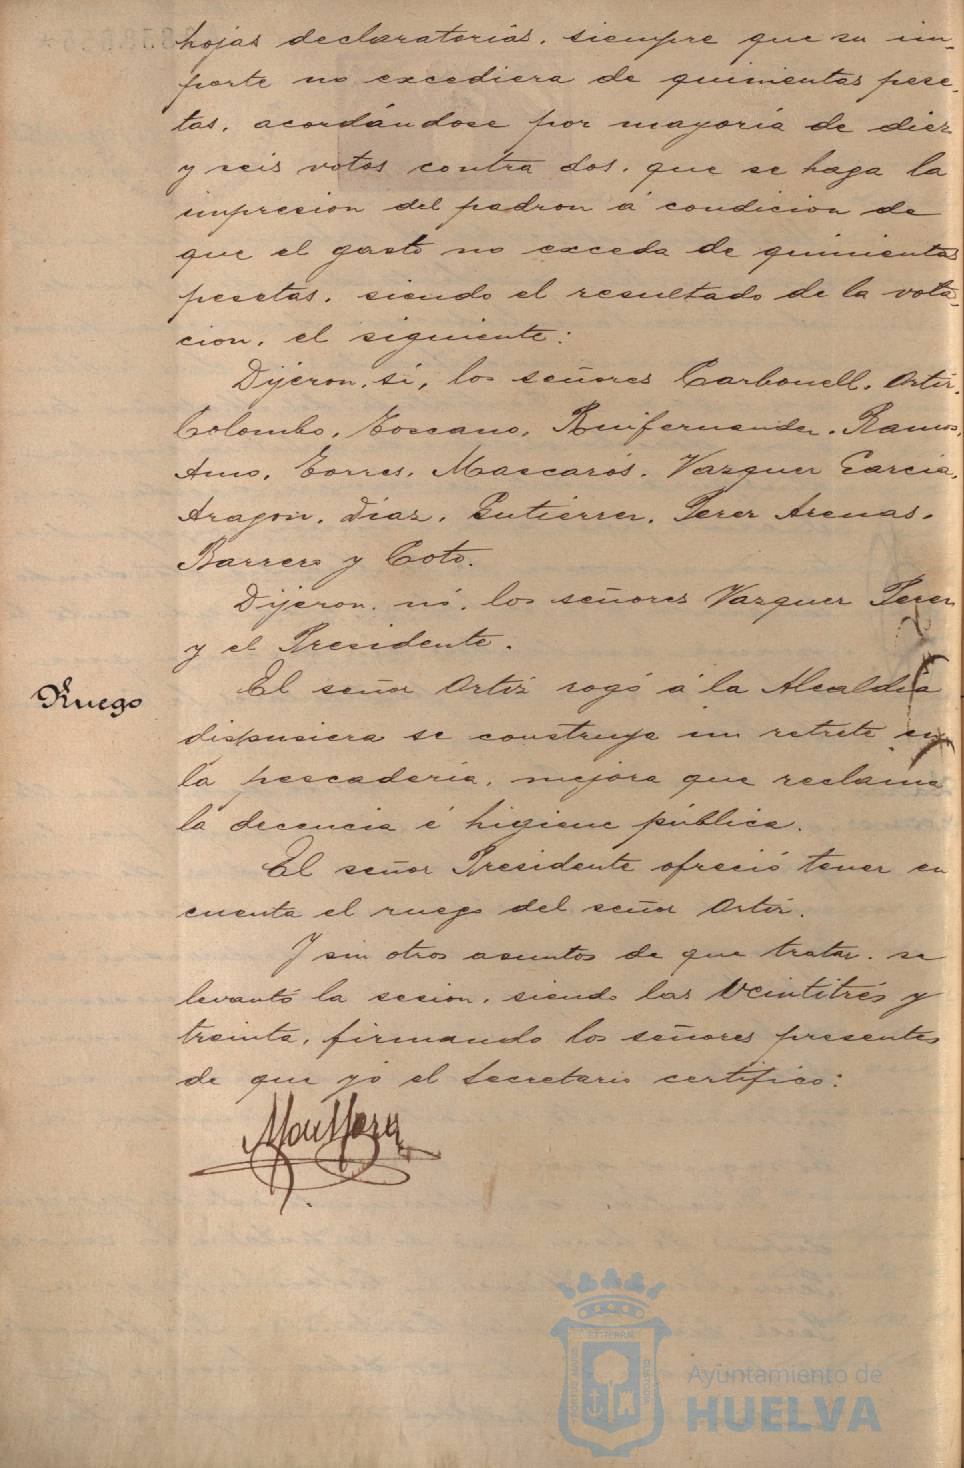 hojas declaratorias, siempre que su im-
porte no excediera de quinientas pese-
tas, acordándose por mayoria de diez
y seis votos contra dos, que se haga la
impresion del padron á condicion de
que el gasto no exceda de quinientas
pesetas, siendo el resultado de la vota-
cion, el siguiente:
Dijeron, si, los señores Carbonell, Ortiz,
Colombo, Toscano, Ruifernandez, Ramos,
Amo, Torres, Mascarós, Vazquez Garcia,
Aragon, Diaz, Gutierrez, Perez Arenas,
Barrero y Coto.
Dijeron, nó, los señores Vazquez Perez
y el Presidente.
Ruego
El señor Ortiz rogó á la Alcaldia
dispusiera se construya un retrete en
la pescaderia, mejora que reclama
la decencia é higiene pública.
El señor Presidente ofreció tener en
cuenta el ruego del señor Ortiz.
Y sin otros asuntos de que tratar, se
levantó la sesion, siendo las veintitrés y
treinta, firmando los señores presentes
de que yo el Secretario certifico:
Ayuntamiento de
HUELVA